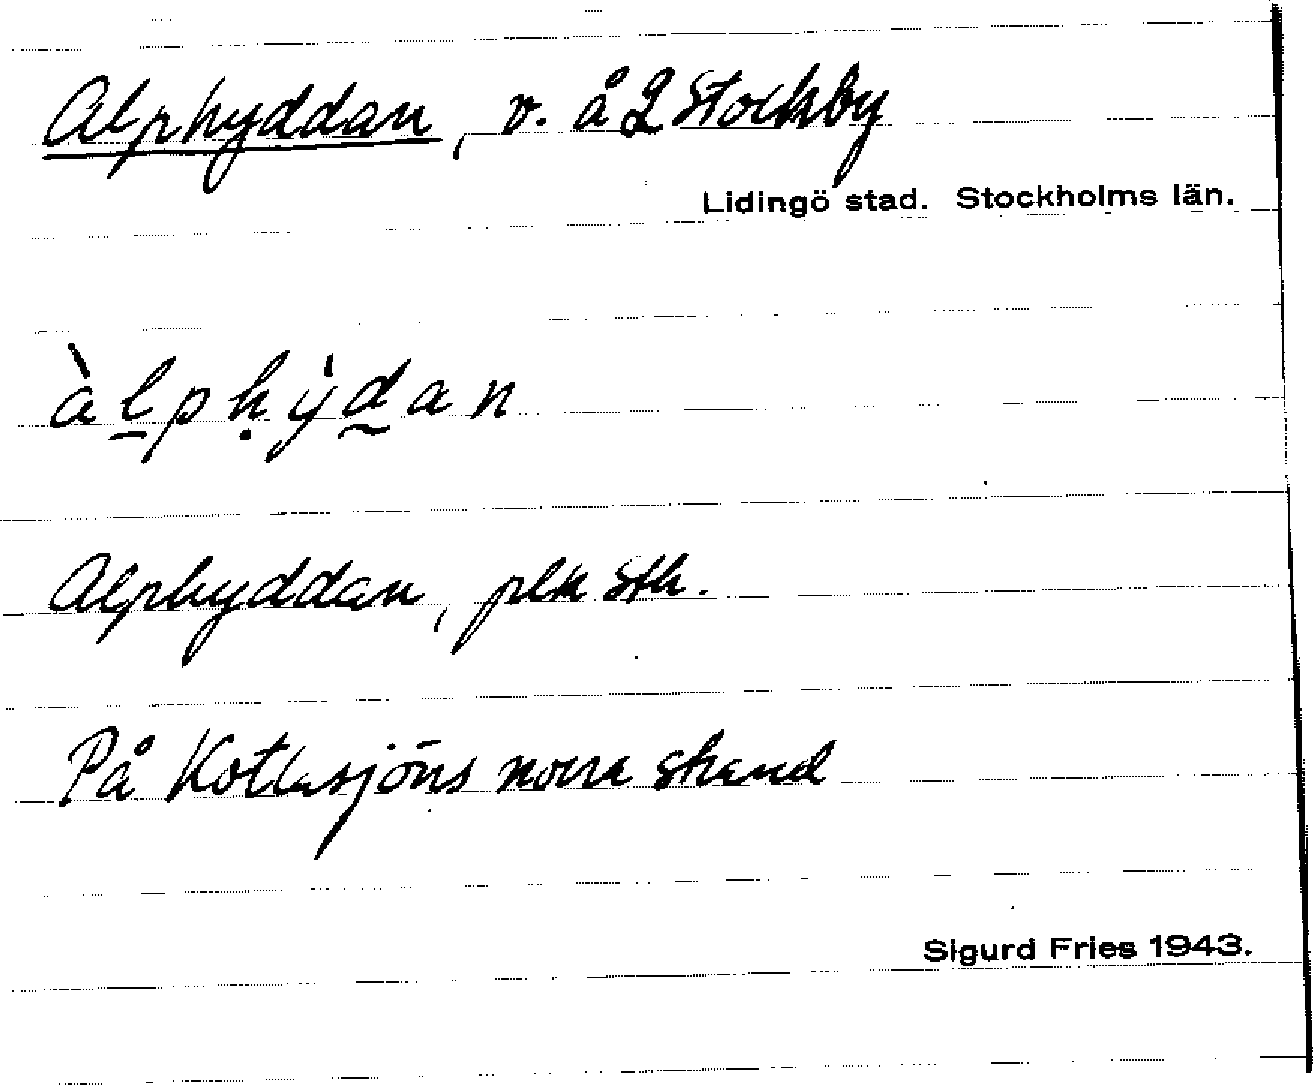 Alphyddan, v. å 2 Stockby
Lidingö stad. Stockholms län.
àlpḥy̍dan
Alphyddan, plk Sth.
På Kottlasjöns norra strand
Sigurd Fries 1943.